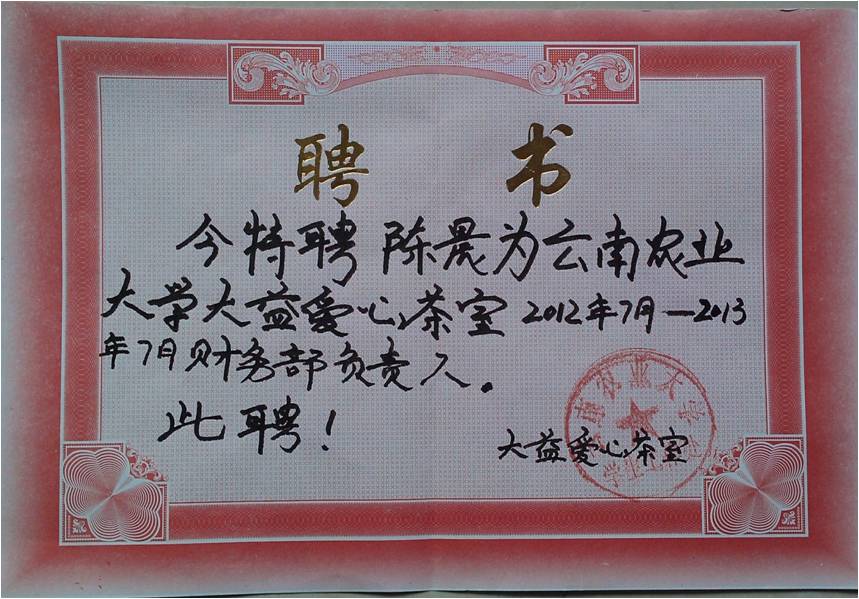 聘书
今特聘 陈晨为云南农业
大学大益爱心茶室 2012年7月—2013
年7月财务部负责人。
此聘！
大益爱心茶室
南农业大学
学生